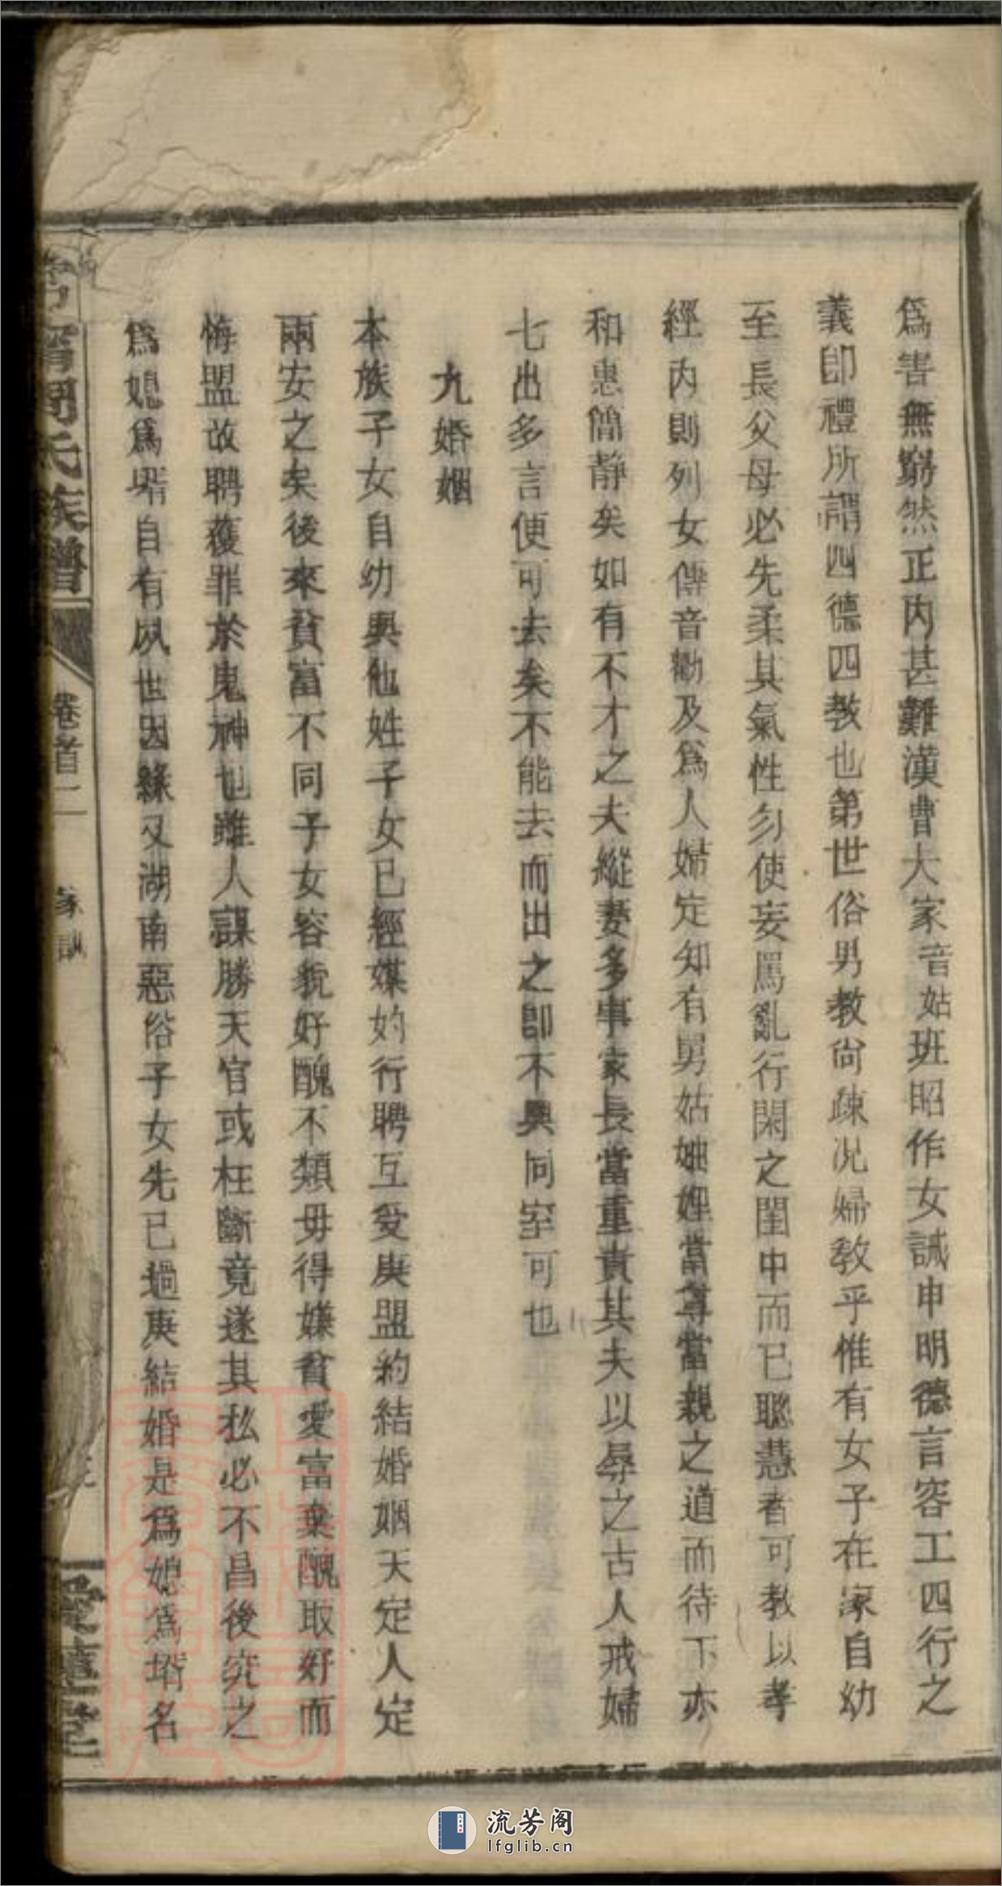 爲害無窮然正內甚難漢曹大家音姑班昭作女誡申明德言容工四行之
義卽禮所謂四德四教也第世俗男教尙疎況婦教乎惟有女子在家自幼
至長父母必先柔其氣性勿使妄罵亂行閑之閨中而已聰慧者可教以孝
經內則列女傳音勸及爲人婦定知有舅姑妯娌當尊當親之道而待下亦
和惠簡靜矣如有不才之夫縱妻多事家長當重責其夫以辱之古人戒婦
七出多言便可去矣不能去而出之卽不與同室可也
九婚姻
本族子女自幼與他姓子女已經媒妁行聘互爻庚盟約結婚姻天定人定
兩安之矣後來貧富不同子女容貌好醜不類毋得嫌貧愛富棄醜取好而
悔盟故聘獲罪於鬼神也雖人謀勝天官或枉斷竟遂其私必不昌後究之
爲媳爲壻自有夙世因緣又湖南惡俗子女先已過庚結婚是爲媳爲壻名
周氏族譜
卷首二
家訓
愛蓮堂
流芳阁
lfglib.cn